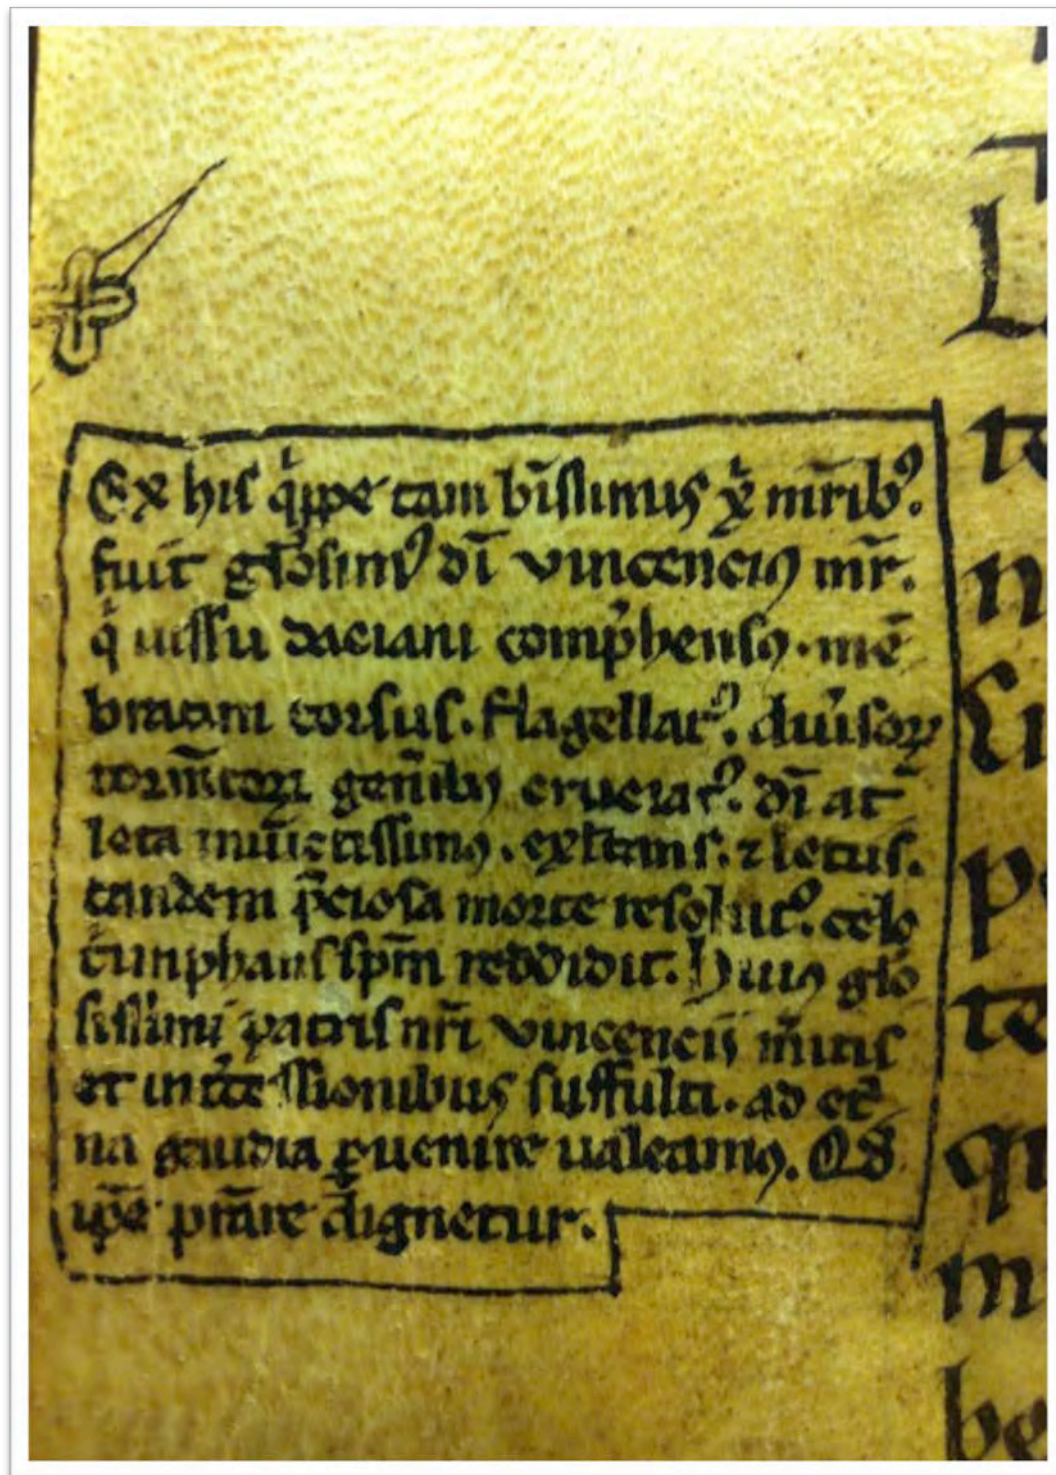 Ex his q̍ppe tam bīssimus xp̄i mr̄ibꝰ.
fuit gl̄osimꝰ dī vincenciꝰ mr̄.
q̍ iussu daciani comp̍hensꝰ. mē
bratim torsus. flagellatꝰ. diu̍soꝝ
torm̄toꝝ gen̄ibꝫ cruciatꝰ. dī at
leta inuictissimꝰ. exl̄tans. ⁊ letus.
tandem p̄ciosa morte resolutꝰ. celo
t̍unphans sp̄m reddidit. Huiꝰ gl̄o
sissimi patris nr̄i vincencii m̍itis
et int̍cessionibus suffulti. ad et̍
na gaudia ꝑuenire ualeamꝰ. Qd̄
ip̄e pr̄are dignetur.